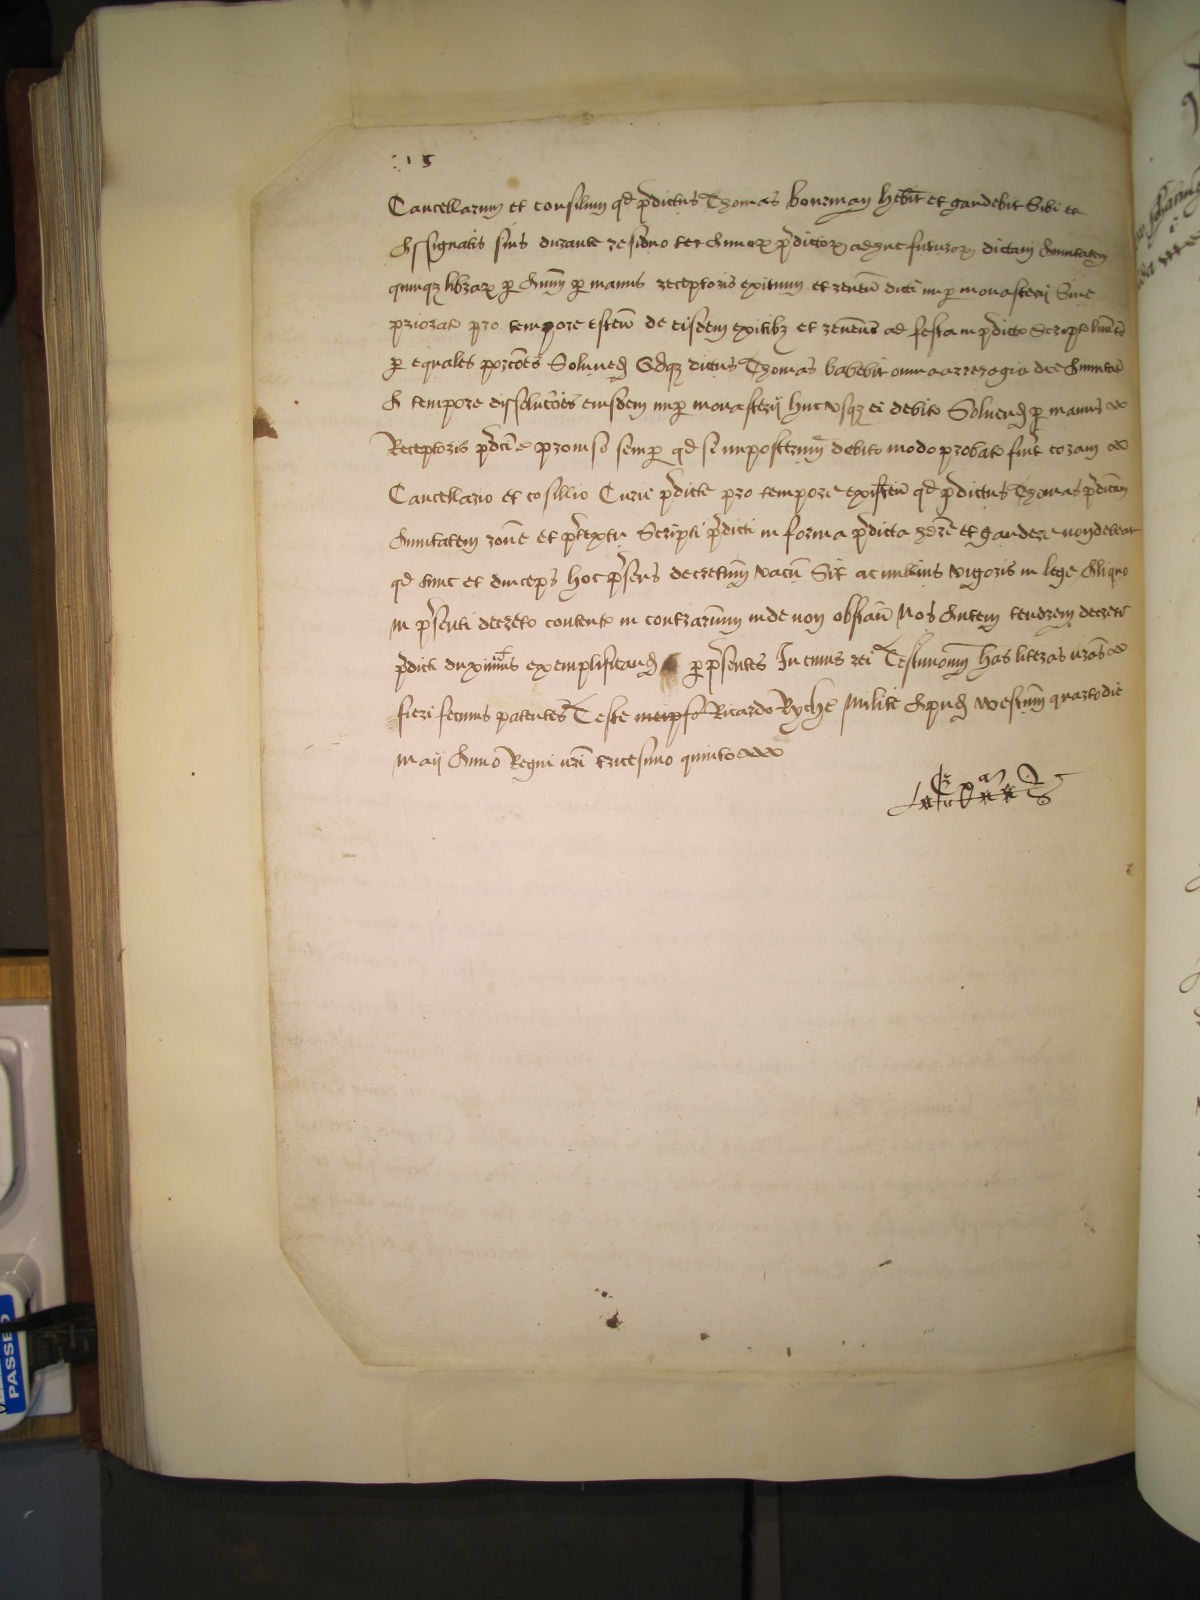 15
Cancellarium et consilium qd p̄dictus Thomas bourman hēbit et gaudebit Sibi et
Assignatis suis durante residuo ter Annoꝝ p̄dictoꝝ adhuc futuroꝝ dictam Annuitatem
quinqꝫ libraꝝ ꝑ Annū ꝑ manus receptoris exituum et reven̄ dicti nuꝑ monasterij Sive
prioratꝰ pro tempore existeñ de eisdem exitibꝫ et reven̄ ad festa in p̄dicto Scripto
ꝑ equales porcōes Solvend Adqꝫ dictus Thomas habebit omnia arreragia dce Annuitat
A tempore dissolucōis eiusdem nuꝑ monasterij hucusqꝫ ei debito Solvend ꝑ manus
Receptoris p̄dci proviso semꝑ qd si imposterum debito modo probato fu'it coram
Cancellario et cosillio Curie p̄dicte pro tempore existeñ qd p̄dictus Thomas p̄dictam
Annuitatem rōne et p̄textu Scripti p̄dicti in forma p̄dicta hēre et gaudere non debeat
qd tunc et deinceps hoc p̄sens decretum vacuū Sit ac nullius vigoris in lege Aliquo
in p̄senti decreto content in contrarium inde non obstañ Nos Autem tenorem decreti
p̄dicti duximus exemplificand ꝑ p̄sentes In cuius rei Testimoniū has literas nr̄as
fieri fecimus patentes Teste meipso Ricardo Ryche Milite Apud Westm̄ quarto die
Maij Anno Regni nr̄i tricesimo quinto